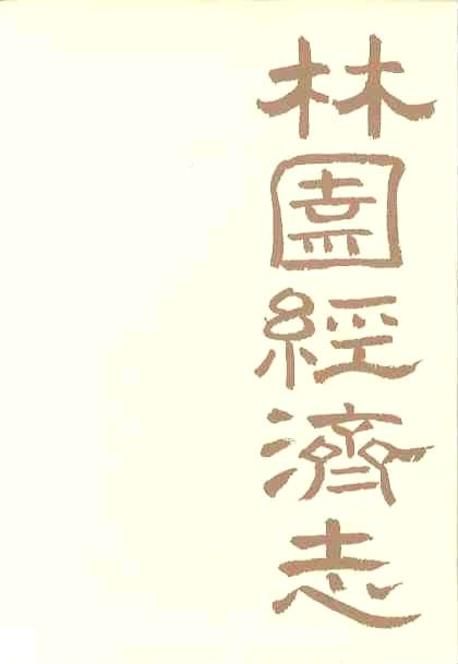 林園經濟志